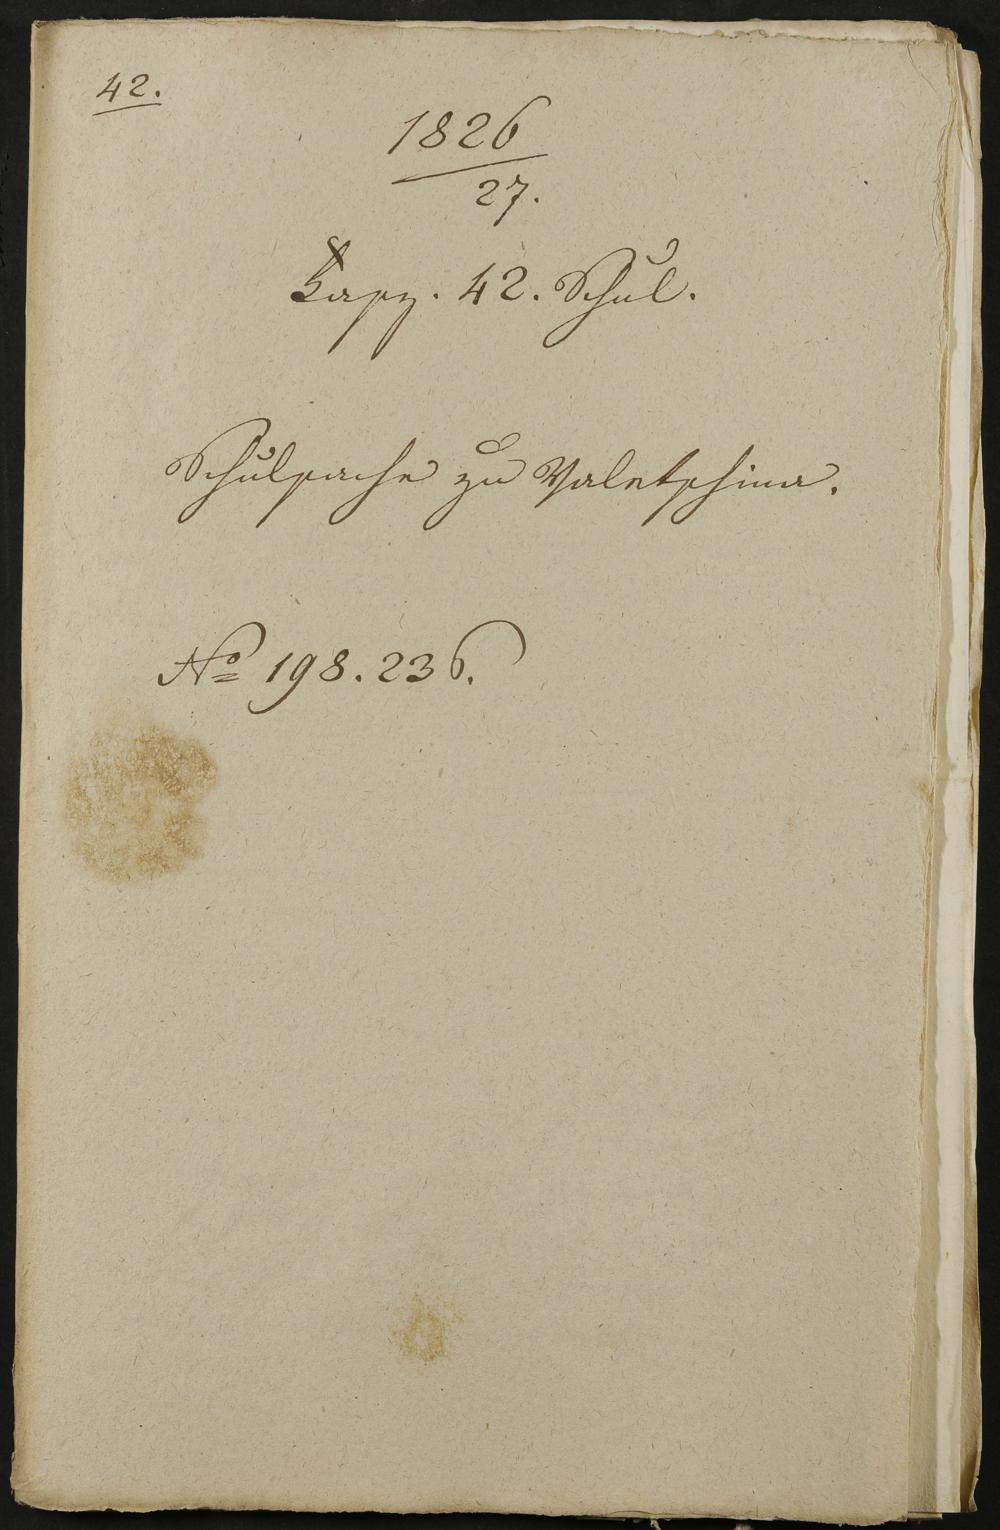 42.
1826
27.
Fasz. 42. Schul.
Schulsache zu Valetschina.
No 198. 236.